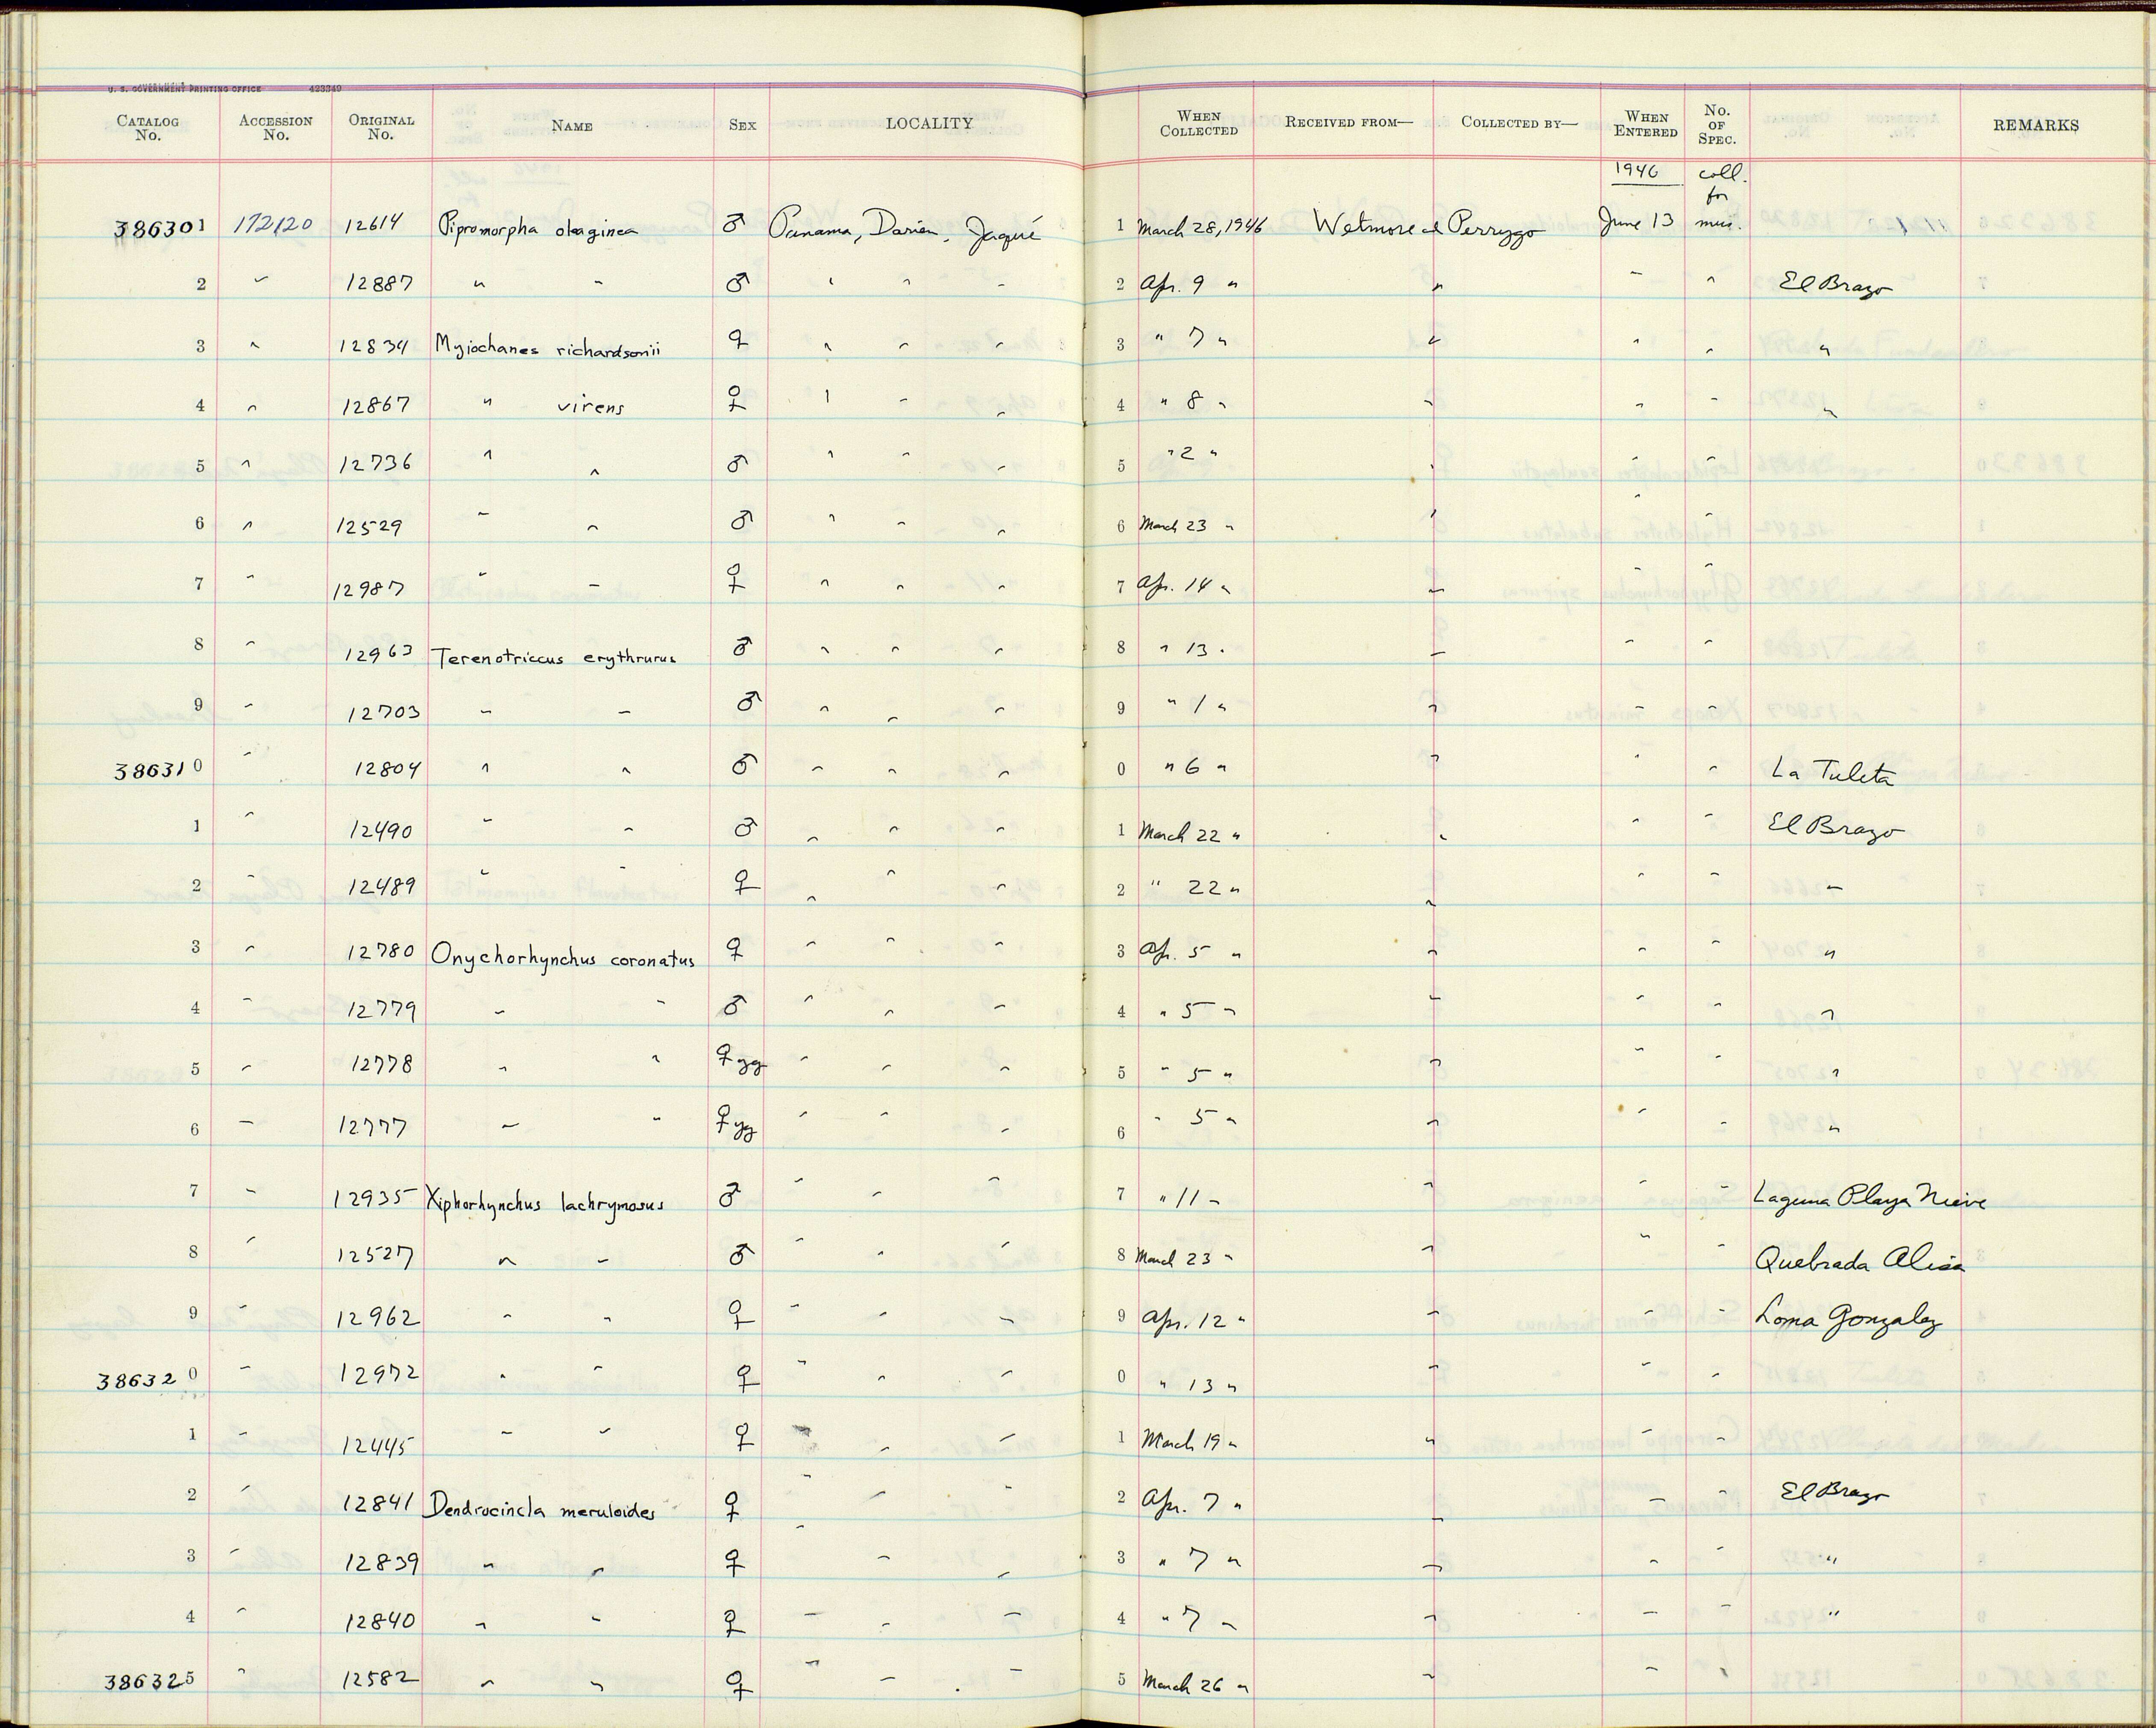 U. S. GOVERNMENT PRINTING OFFICE 423349
CATALOG No. ACCESSION No. ORIGINAL No. NAME SEX LOCALITY WHEN COLLECTED RECEIVED FROM— COLLECTED BY— WHEN ENTERED No. OF SPEC. REMARKS
1946 coll. for
386301 172120 12614 Pipromorpha oleaginea ♂ Panama, Darien, Jaqué 1 March 28, 1946 Wetmore & Perrygo June 13 mus.
2 " 12887 " " ♂ " " " 2 Apr. 9 " " " " El Brazo
3 " 12834 Myiochanes richardsonii ♀ " " " 3 " 7 " " " " "
4 " 12867 " virens ♀ " " " 4 " 8 " " " " "
5 " 12736 " " ♂ " " " 5 " 2 " " " "
6 " 12529 " " ♂ " " " 6 March 23 " " " "
7 " 12987 " " ♀ " " " 7 Apr. 14 " " " "
8 " 12963 Terenotriccus erythrurus ♂ " " " 8 " 13 " " " "
9 " 12703 " " ♂ " " " 9 " 1 " " " "
386310 " 12804 " " ♂ " " " 0 " 6 " " " " La Tuleta
1 " 12490 " " ♂ " " " 1 March 22 " " " " El Brazo
2 " 12489 " " ♀ " " " 2 " 22 " " " " "
3 " 12780 Onychorhynchus coronatus ♀ " " " 3 Apr. 5 " " " " "
4 " 12779 " " ♂ " " " 4 " 5 " " " " "
5 " 12778 " " ♀ yg " " " 5 " 5 " " " " "
6 " 12777 " " ♀ yg " " " 6 " 5 " " " " "
7 " 12935 Xiphorhynchus lachrymosus ♂ " " " 7 " 11 " " " " Laguna Playa Nieve
8 " 12527 " " ♂ " " " 8 March 23 " " " " Quebrada Alisa
9 " 12962 " " ♀ " " " 9 Apr. 12 " " " " Loma Gonzalez
386320 " 12972 " " ♀ " " " 0 " 13 " " " "
1 " 12445 " " ♀ " " " 1 March 19 " " " "
2 " 12841 Dendrocincla meruloides ♀ " " " 2 Apr. 7 " " " " El Brazo
3 " 12839 " " ♀ " " " 3 " 7 " " " " "
4 " 12840 " " ♀ " " " 4 " 7 " " " " "
386325 " 12582 " " ♀ " " " 5 March 26 " " " "